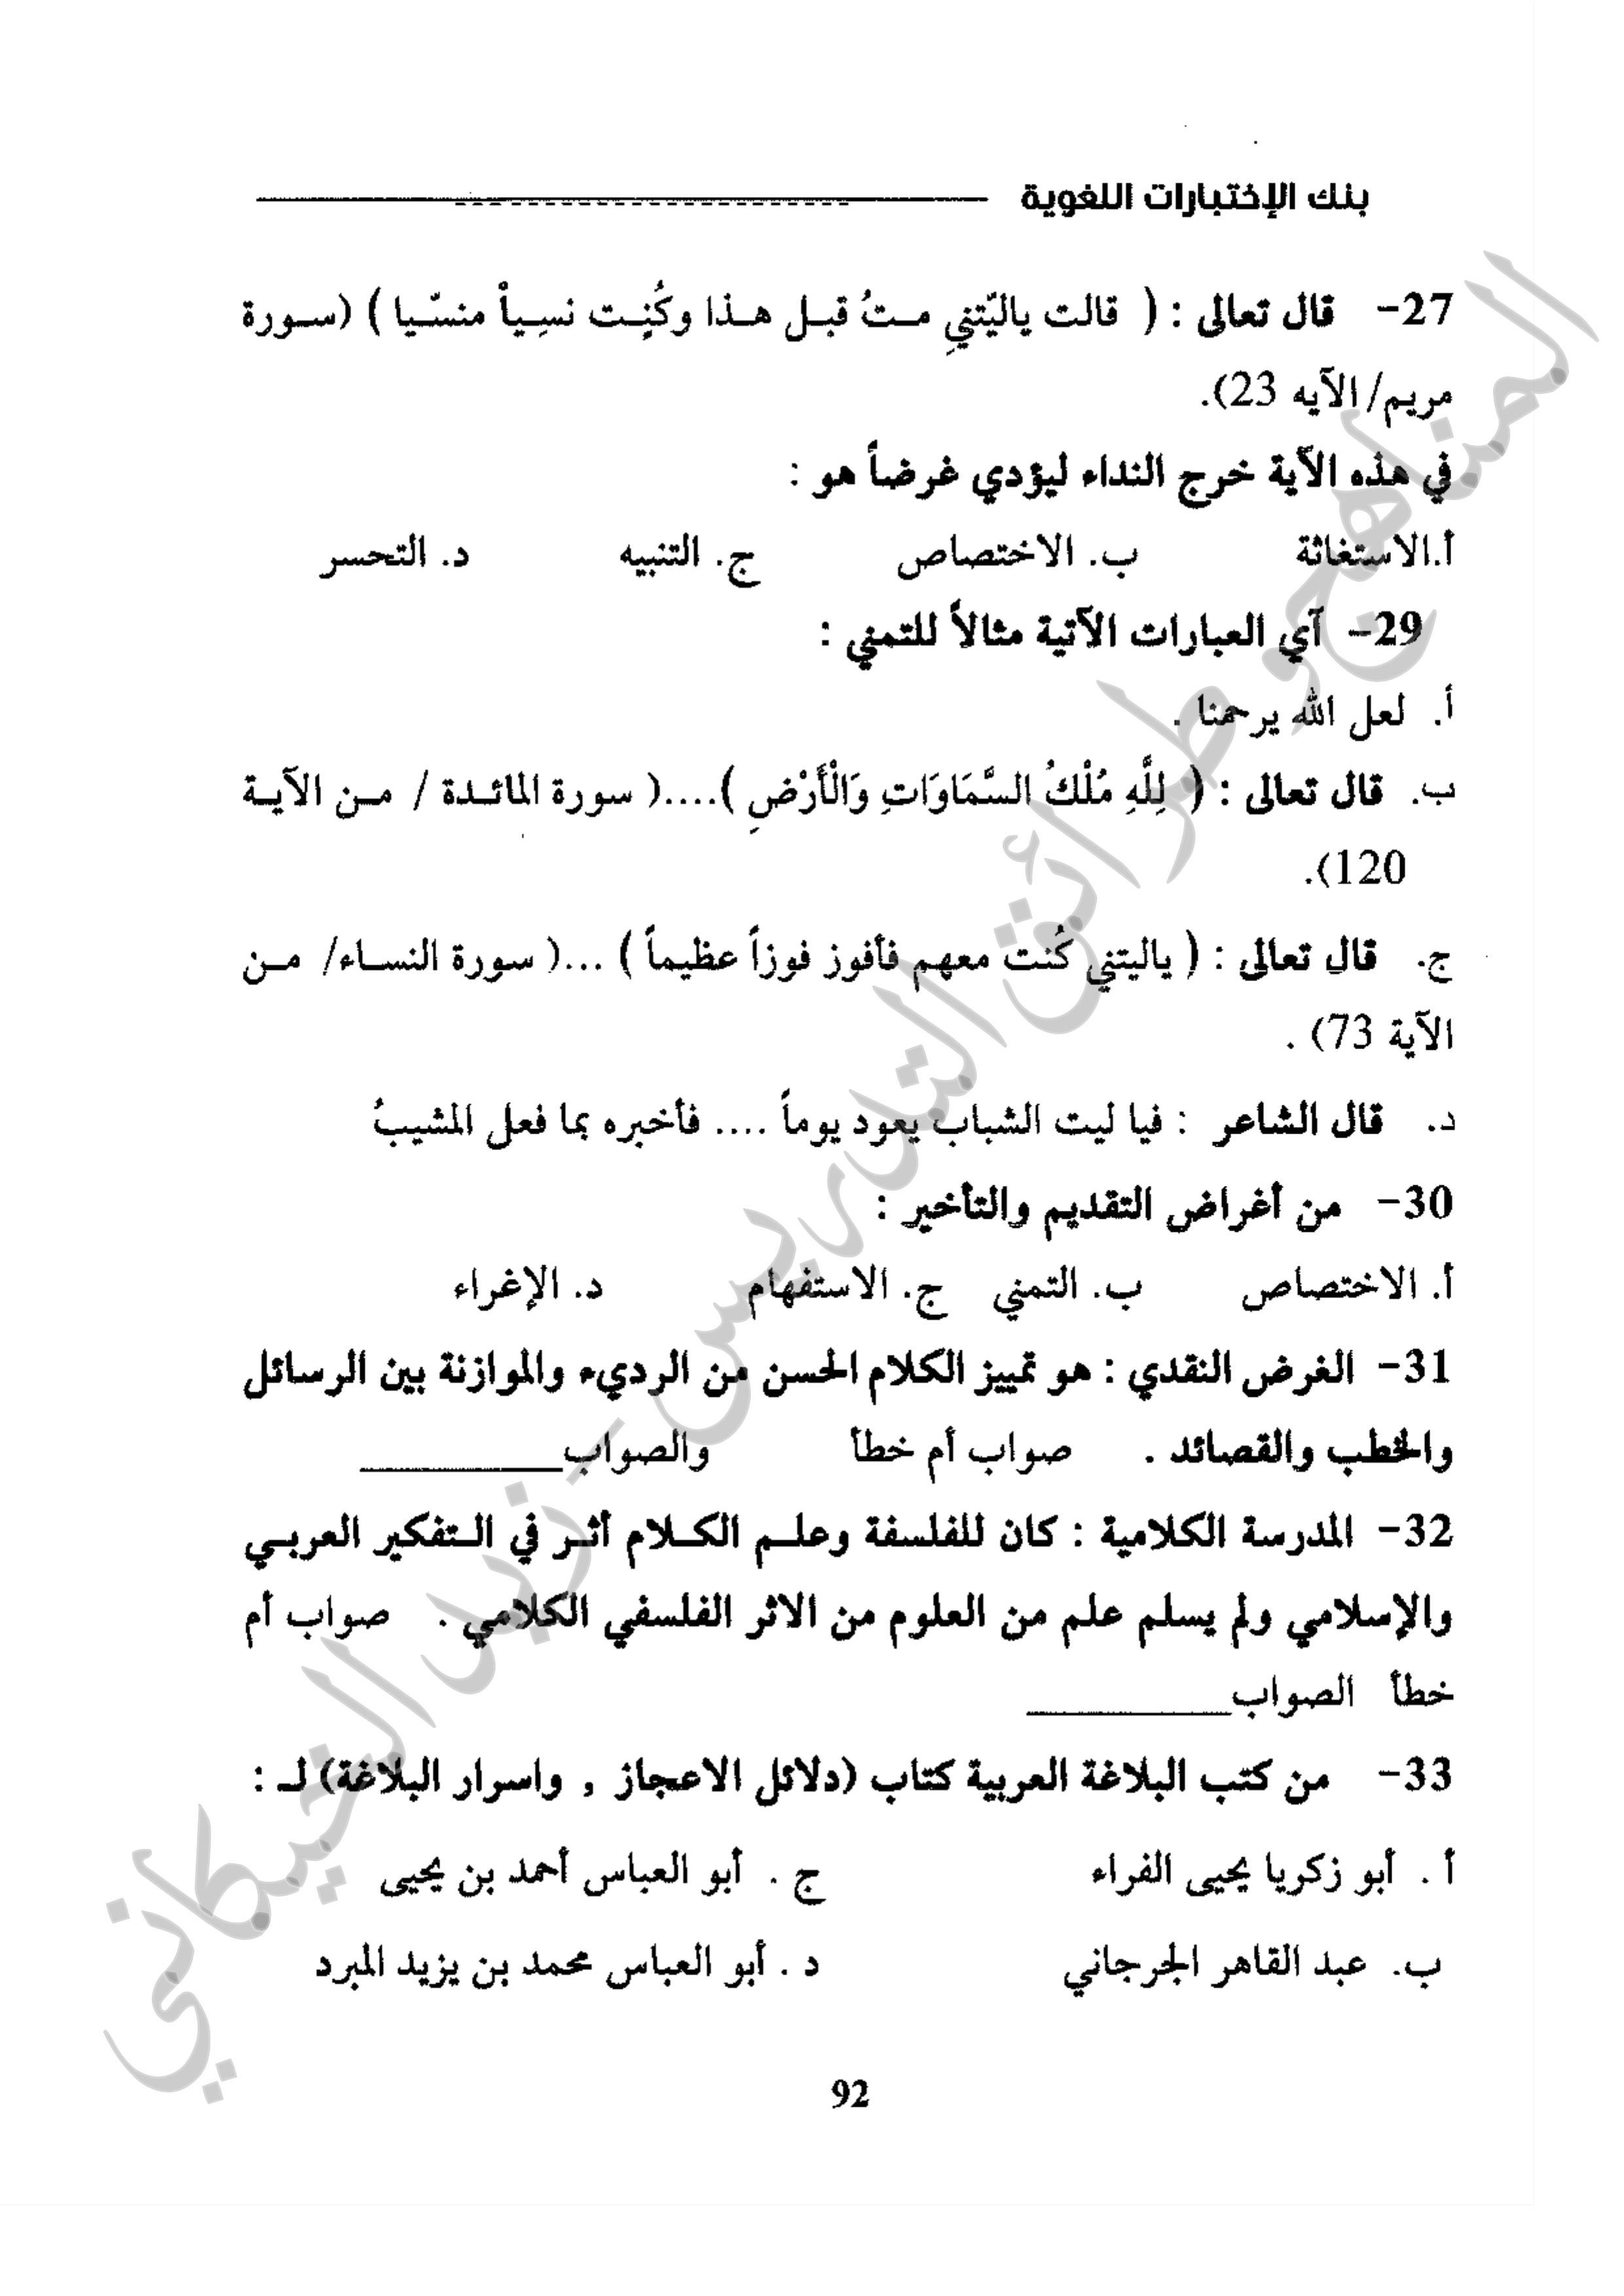 بنك الإختبارات اللغوية
27- قال تعالى : ( قالت ياليّتنيِ مـتُ قبـل هـذا وكُنِـت نسِـياً منسّـيا ) (سـورة
مريم/ الآيه 23).
في هذه الآية خرج النداء ليؤدي غرضاً هو :
أ.الاستغاثة ب. الاختصاص ج. التنبيه د. التحسر
29- آي العبارات الآتية مثالاً للتمني :
أ. لعل الله يرحمنا .
ب. قال تعالى : ( لِلَّهِ مُلْكُ السَّمَاوَاتِ وَالْأَرْضِ )....( سورة المائـدة / مـن الآيـة
120).
ج. قال تعالى : ( ياليتني كُنت معهم فأفوز فوزاً عظيماً ) ...( سورة النسـاء/ مـن
الآية 73) .
د. قال الشاعر : فيا ليت الشباب يعود يوماً .... فأخبره بما فعل المشيبُ
30- من أغراض التقديم والتأخير :
أ. الاختصاص ب. التمني ج. الاستفهام د. الإغراء
31- الغرض النقدي : هو تمييز الكلام الحسن من الرديء والموازنة بين الرسائل
والخطب والقصائد . صواب أم خطأ والصواب__________
32- المدرسة الكلامية : كان للفلسفة وعلـم الكـلام أثـر في الـتفكير العربـي
والإسلامي ولم يسلم علم من العلوم من الاثر الفلسفي الكلامي . صواب أم
خطأ الصواب__________
33- من كتب البلاغة العربية كتاب (دلائل الاعجاز , واسرار البلاغة) لـ :
أ . أبو زكريا يحيى الفراء ج . أبو العباس أحمد بن يحيى
ب. عبد القاهر الجرجاني د . أبو العباس محمد بن يزيد المبرد
92
المناهج وطرائق التدريس - زيد الخيكاني